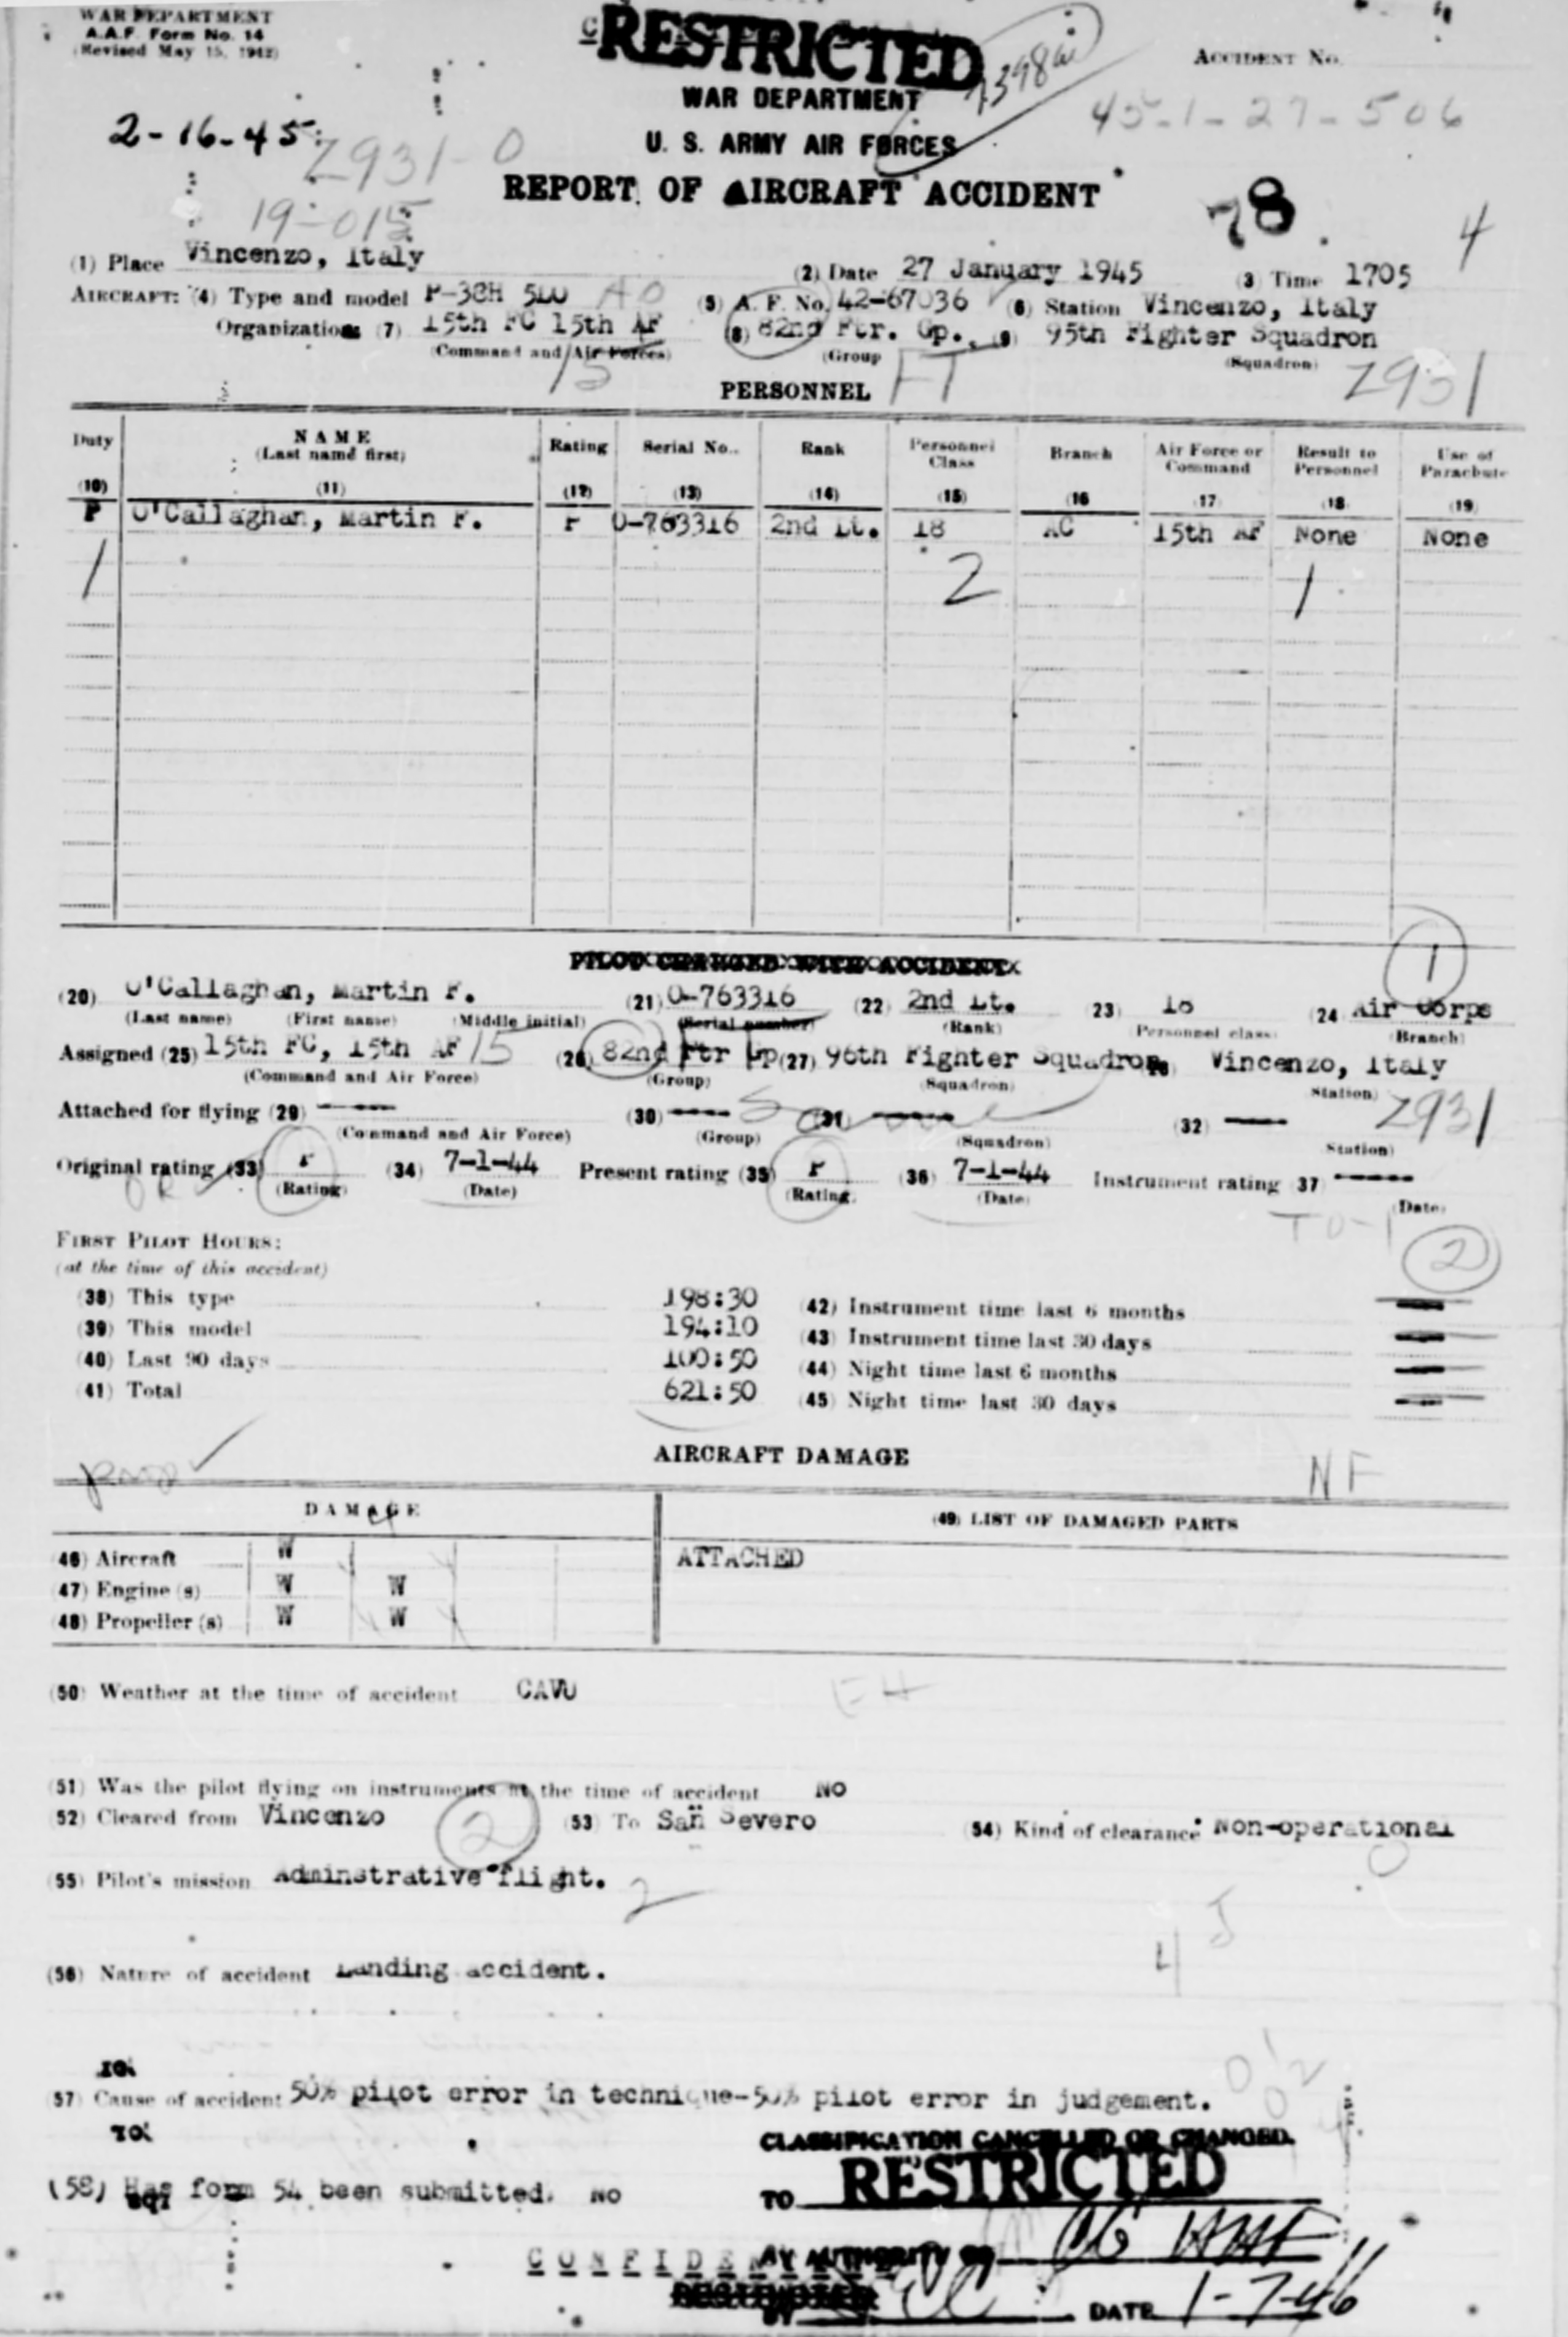 WAR DEPARTMENT
A.A.F. Form No. 14
(Revised May 15, 1942)
RESTRICTED
ACCIDENT No.
45-1-27-506
WAR DEPARTMENT
2-16-45
Z931-0
U. S. ARMY AIR FORCES
REPORT OF AIRCRAFT ACCIDENT
19-015
78
4
(1) Place Vincenzo, Italy (2) Date 27 January 1945 (3) Time 1705
AIRCRAFT: (4) Type and model P-38H 5LO (5) A. F. No. 42-67036 (6) Station Vincenzo, Italy
Organization: (7) 15th FC 15th AF (8) 82nd Ftr. Gp., (9) 95th Fighter Squadron
(Command and Air Forces) (Group (Squadron)
15 FT Z931
PERSONNEL
Duty NAME Rating Serial No. Rank Personnel Class Branch Air Force or Command Result to Personnel Use of Parachute
(Last name first)
(10) (11) (12) (13) (14) (15) (16 17 (18 (19)
P O'Callaghan, Martin F. P O-763316 2nd Lt. 18 AC 15th AF None None
1 2 1
1
PILOT CHARGED WITH ACCIDENT
(20) O'Callaghan, Martin F. (21) O-763316 (22 2nd Lt. 23) 18 24 Air Corps
(Last name) (First name) (Middle initial) (Serial number) (Rank) (Personnel class) (Branch)
Assigned (25) 15th FC, 15th AF 15 (26) 82nd Ftr Gp (27) 96th Fighter Squadron Vincenzo, Italy
(Command and Air Force) (Group) (Squadron) Station)
Z931
Attached for flying (29) ---- (30) ---- (31) ---- (32) ----
(Command and Air Force) (Group) (Squadron) Station)
Original rating (33) P (34) 7-1-44 Present rating (35) P (36) 7-1-44 Instrument rating 37) ----
(Rating) (Date) (Rating) (Date) (Date)
2
FIRST PILOT HOURS:
(at the time of this accident)
(38) This type 198:30 (42) Instrument time last 6 months ---
(39) This model 194:10 (43) Instrument time last 30 days ---
(40) Last 90 days 100:50 (44) Night time last 6 months ---
(41) Total 621:50 (45) Night time last 30 days ---
AIRCRAFT DAMAGE
NF
DAMAGE (49) LIST OF DAMAGED PARTS
46) Aircraft W ATTACHED
47) Engine (s) W W
48) Propeller (s) W W
(50) Weather at the time of accident CAVU
(51) Was the pilot flying on instruments at the time of accident NO
52) Cleared from Vincenzo 2 (53) To San Severo (54) Kind of clearance Non-operational
(55) Pilot's mission Adminstrative flight. 2
4
(56) Nature of accident Landing accident.
57) Cause of accident 50% pilot error in technique-50% pilot error in judgement.
CLASSIFICATION CANCELLED OR CHANGED.
(58) Has form 54 been submitted. NO
TO RESTRICTED
BY AUTHORITY OF
CONFIDENTIAL
DATE 1-7-46